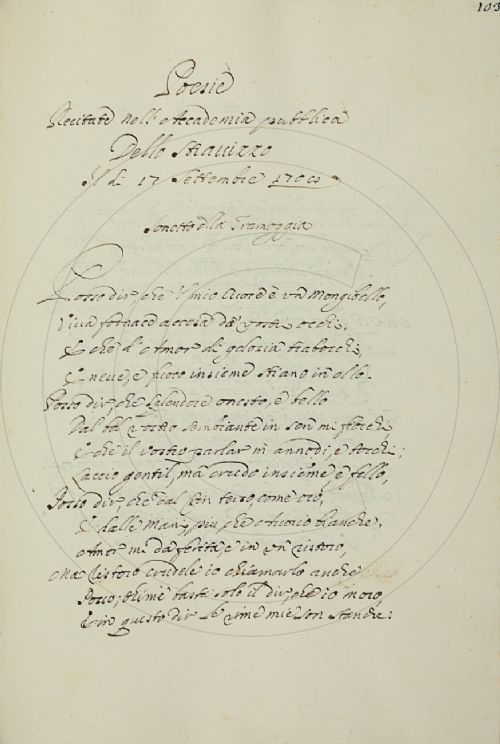 103
Poesie
Recitate nell' Accademia pubblica
Dello Stravizzo
Il dì 17 Settembre 1700
Sonetto della Tramoggia
Posso dir, che il mio Cuore è un Mongibello,
Viva fornace accesa da' vostri occhi,
E che d'Amor di gelosia trabocchi,
E neve, e fuoco insieme stiano in ello.
Posso dir, che splendore onesto, e bello
Dal bel vostro sembiante in sen mi fiocchi
E che il vostro parlar m'annodi, e tocchi;
Laccio gentil, ma crudo insieme, e fello,
Posso dir, che dal crin terso, come oro,
E dalle man, più che avorio bianche,
Amor mi dà ferita, e in un ristoro,
Ma ristoro crudele io chiamarlo anche
Posso; ohimè basti solo il dir, che io moro,
E in questo dir le rime mie son stanche: